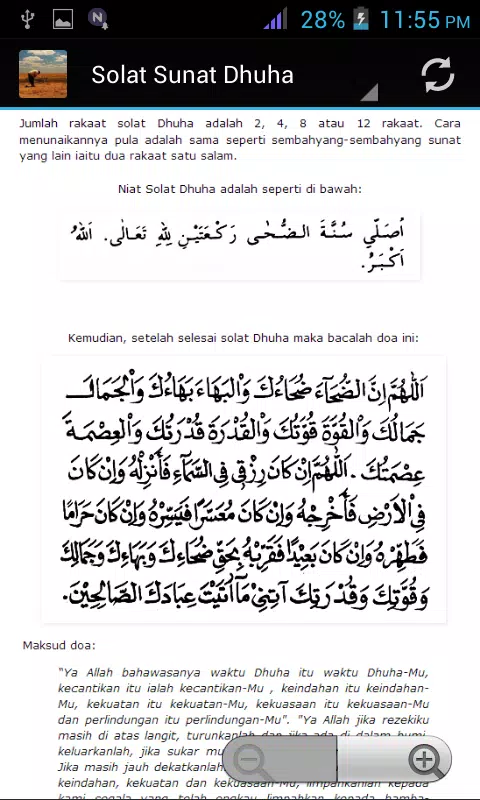 28% 11:55 PM
Solat Sunat Dhuha
Jumlah rakaat solat Dhuha adalah 2, 4, 8 atau 12 rakaat. Cara
menunaikannya pula adalah sama seperti sembahyang-sembahyang sunat
yang lain iaitu dua rakaat satu salam.
Niat Solat Dhuha adalah seperti di bawah:
اُصَلِّي سُنَّةَ الضُّحٰى رَكْعَتَيْنِ لِلّٰهِ تَعَالٰى. اَللّٰهُ
اَكْبَرُ.
Kemudian, setelah selesai solat Dhuha maka bacalah doa ini:
اَللّٰهُمَّ اِنَّ الضُّحَآءَ ضُحَاءُكَ وَالْبَهَاءَ بَهَاءُكَ وَالْجَمَالَ
جَمَالُكَ وَالْقُوَّةَ قُوَّتُكَ وَالْقُدْرَةَ قُدْرَتُكَ وَالْعِصْمَةَ
عِصْمَتُكَ. اَللّٰهُمَّ اِنْ كَانَ رِزْقِي فِي السَّمَآءِ فَأَنْزِلْهُ وَاِنْ كَانَ
فِي اْلاَرْضِ فَأَخْرِجْهُ وَاِنْ كَانَ مُعَسَّرًا فَيَسِّرْهُ وَاِنْ كَانَ حَرَامًا
فَطَهِّرْهُ وَاِنْ كَانَ بَعِيْدًا فَقَرِّبْهُ بِحَقِّ ضُحَاءِكَ وَبَهَاءِكَ وَجَمَالِكَ
وَقُوَّتِكَ وَقُدْرَتِكَ آتِنِيْ مَآ اٰتَيْتَ عِبَادَكَ الصَّالِحِيْنَ.
Maksud doa:
"Ya Allah bahawasanya waktu Dhuha itu waktu Dhuha-Mu,
kecantikan itu ialah kecantikan-Mu , keindahan itu keindahan-
Mu, kekuatan itu kekuatan-Mu, kekuasaan itu kekuasaan-Mu
dan perlindungan itu perlindungan-Mu". "Ya Allah jika rezekiku
masih di atas langit, turunkanlah dan jika ada di dalam bumi,
keluarkanlah, jika sukar
Jika masih jauh dekatkanlah
keindahan, kekuatan dan kekuasaan-Mu, limpahkanlah kepada
kami segala yang telah engkau limpahkan kepada hamba-